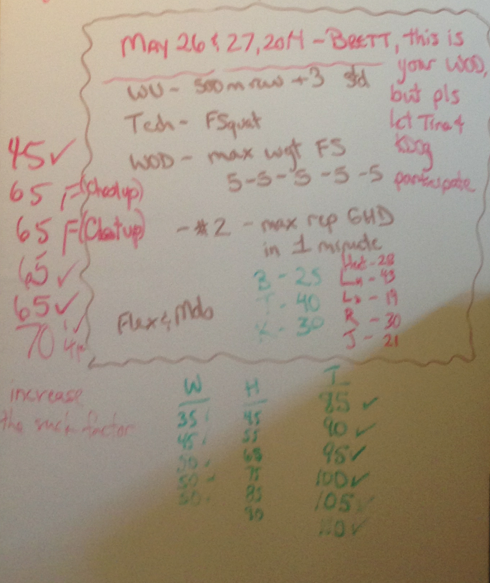 MAY 26 & 27, 2014 - BRETT, this is
your WOD,
but pls
let Tina &
KDog
participate
WU - 500 m row + 3 std
Tech - FSquat
WOD - max wgt FS
5-5-5-5-5
- #2 - max rep GHD
in 1 minute
B - 25
T - 40
K - 30
- 28
Ln - 43
La - 19
R - 30
J - 21
Flex & Mob
45 ✓
65 F (Chestup)
65 F (Chestup)
65 ✓
65 ✓
70
increase
the suck factor
W H T
35 45 85 ✓
45 55 90 ✓
50 65 95 ✓
50 75 100 ✓
50 85 105 ✓
90 110 ✓